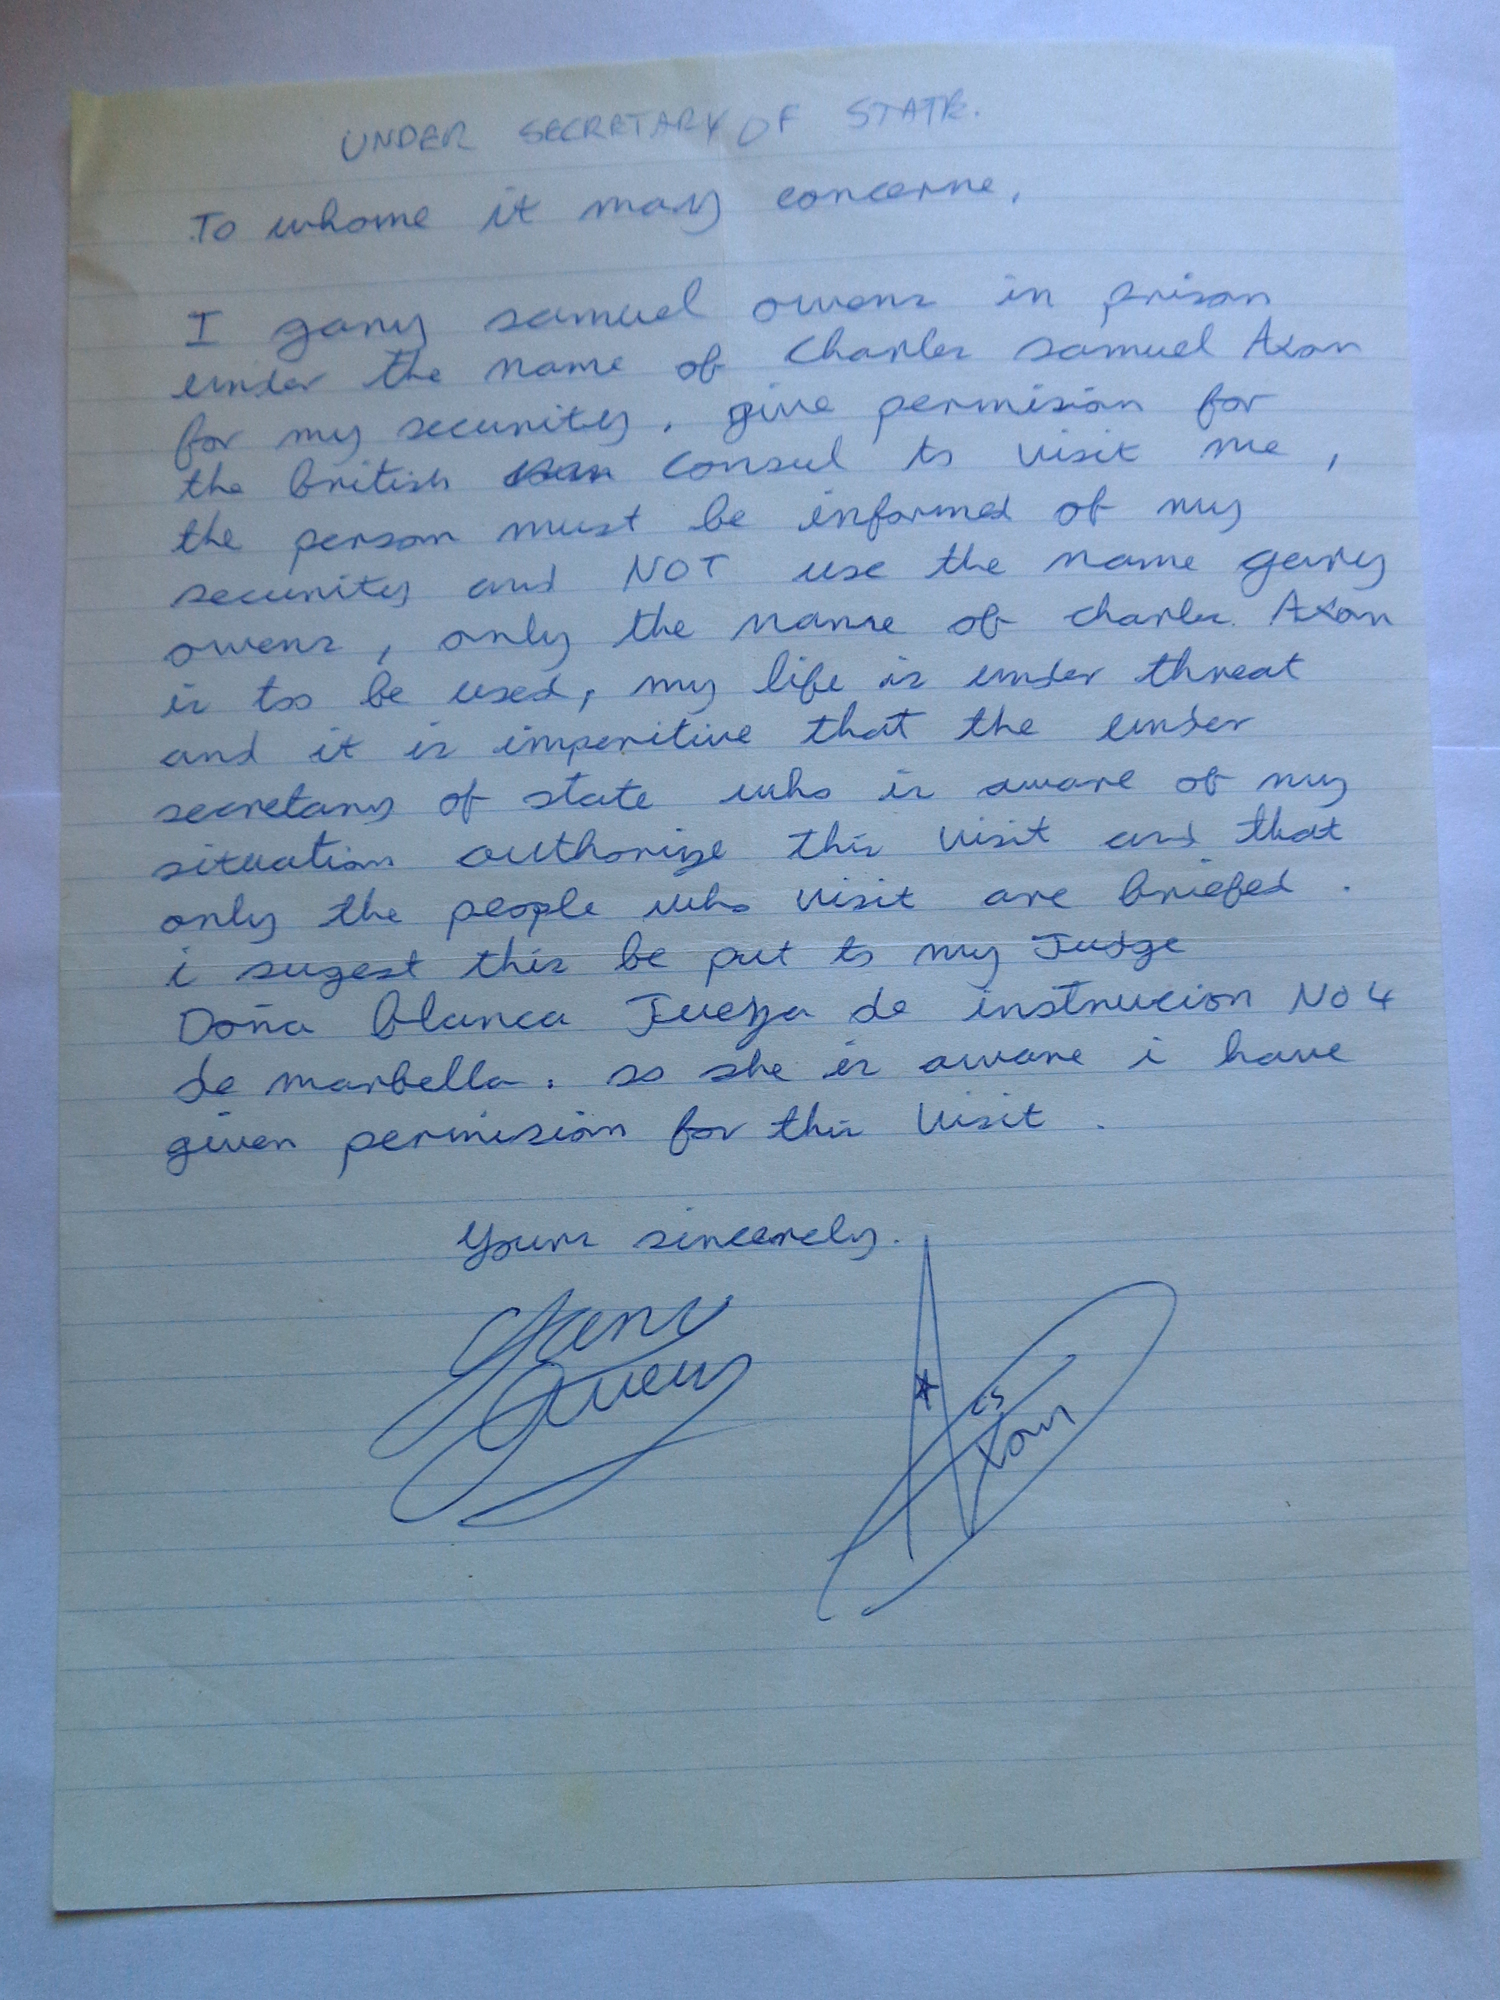 UNDER SECRETARY OF STATE.
To whome it may concerne,
I gary samuel owens in prison
under the name of Charles samuel Axon
for my security, give permision for
the british consul to visit me,
the person must be informed of my
security and NOT use the name gary
owens, only the name of charles Axon
is too be used, my life is under threat
and it is imperitive that the under
secretary of state who is aware of my
situation authorize this visit and that
only the people who visit are briefed.
i sugest this be put to my Judge
Doña blanca Juezza de instrucion No 4
de marbella. so she is aware i have
given permision for this visit.
Yours sincerely.
Gary
Owens
CS
Axon